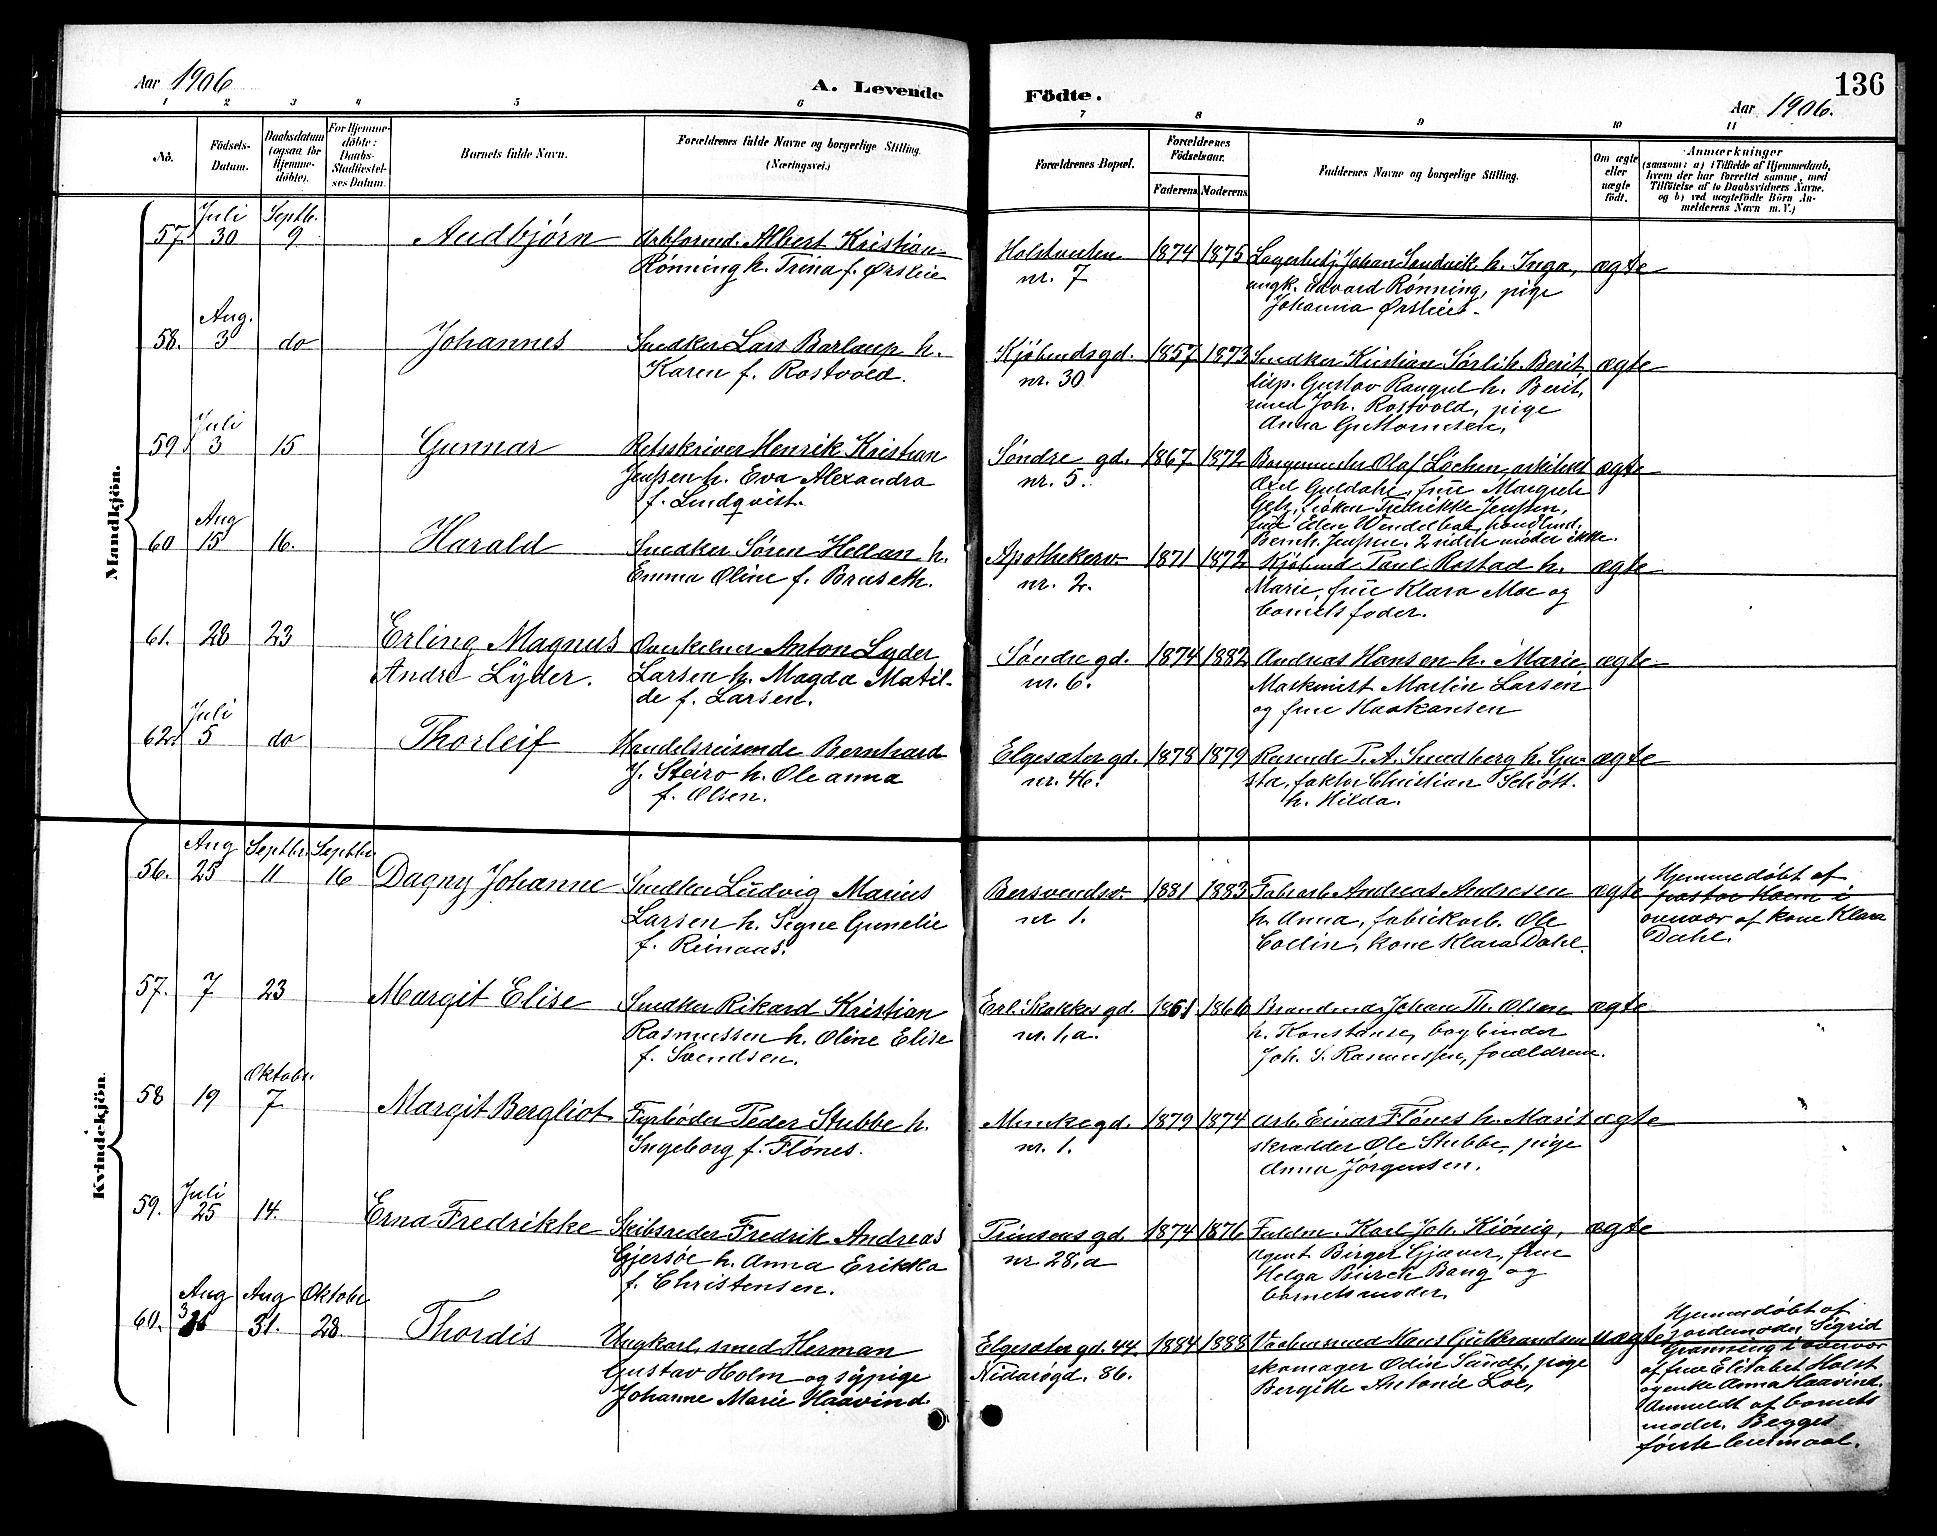 Aar 1906
A. Levende
Födte.
136
Aar 1906.
1 2 3 4 5 6 7 8 9 10 11
No.
Födsels-
Datum.
Daabsdatum
(ogsaa for
Hjemme-
döbte).
For Hjemme-
döbte:
Daabs-
Stadfæstel-
ses Datum.
Barnets fulde Navn.
Forældrenes fulde Navne og borgerlige Stilling.
(Næringsvei.)
Forældrenes Bopæl.
Forældrenes
Födselsaar.
Faderens Moderens
Faddernes Navne og borgerlige Stilling.
Om ægte
eller
uægte
födt.
Anmærkninger
(saasom: a) i Tilfælde af Hjemmedaab,
hvem der har forrettet samme, med
Tilföielse af to Daabsvidners Navne.
og b) ved uægtefödte Börn An-
melderens Navn m. V.)
Mandkjön.
57. Juli 30 Septb. 9 Audbjørn
Arbformd. Albert Kristian
Rønning h. Trina f. Ørslie
Holstveiten
nr. 7
1874 1875
Lagerbetj Johan Sandvik h. Inga,
ungk. Edvard Rønning, pige
Johanna Ørslie.
ægte
58. Aug. 3 do Johannes
Snedker Lars Barlaup h.
Karen f. Rostvold.
Kjøbmdsgd.
nr. 30
1857 1873
Snedker Kristian Sørli h. Berit
disp. Gustav Rangul h. Berit,
smed Joh. Rostvold, pige
Anna Guttormsen,
ægte
59 Juli 3 15 Gunnar
Retsskriver Henrik Kristian
Jenssen h. Eva Alexandra
f. Lindqvist.
Søndre gd.
nr. 5.
1867 1872
Borgermester Olaf Lochen, arkitekt
Axel Guldahl, frue Margrete
Getz, frøken Fredrikke Jenssen,
frue Ellen Wendelboe, handlend.
Bernh. Jenssen. 2 sidste møder ikke.
ægte
60 Aug 15 16. Harald
Snedker Søren Hellan h.
Emma Oline f. Bruseth.
Apothekerv.
nr. 2.
1871 1872
Kjøbmd Paul Rostad h.
Marie, frue Klara Moe og
barnets fader.
ægte
61. 28 23 Erling Magnus
André Lyder.
Overkelner Anton Lyder
Larsen h. Magda Matil-
de f. Larsen.
Søndre gd.
nr. 6.
1874 1882
Andreas Hansen h. Marie
Maskinist Martin Larsen
og frue Haakansen
ægte
62. Juli 5 do Thorleif
Handelsreisende Bernhard
J. Steiro h. Oleanna
f. Olsen.
Elgesæter gd.
nr. 46.
1878 1879
Reisende P. A. Smedberg h. Gu-
sta, faktor Christian Schött
h. Hilda.
ægte
Kvindekjön.
56. Aug 25 Septbr. 11 Septbr. 16 Dagny Johanne
Snedker Ludvig Marius
Larsen h. Signe Gunelie
f. Reinaas.
Bersvendsv.
nr 1.
1881 1883
Fabarb. Andreas Andresen
h. Anna, fabrikarb. Ole
Collin, kone Klara Dahl.
ægte
Hjemmedøbt af
pastor Koem i
overvær af kone Klara
Dahl.
57. 7 23 Margit Elise
Snedker Rikard Kristian
Rasmussen h. Oline Elise
f. Svendsen.
Erl. Skakkes gd.
nr. 1,a.
1861 1866
Brandmd. Johan Th. Olsen
h. Konstanse, bogbinder
Joh. S. Rasmussen, forældrene.
ægte
58 19 Oktobr. 7 Margit Bergliot
Fyrbøder Peder Stubbe h.
Ingeborg f. Flønes.
Munkegd.
nr. 1.
1879 1874
Arb. Einar Flønes h. Marit
skrædder Ole Stubbe, pige
Anna Jørgensen.
ægte
59. Juli 25 14. Erna Fredrikke
Skibsreder Fredrik Andreas
Gjersøe h. Anna Erikka
f. Christensen.
Prinsens gd.
nr 28,a
1874 1876
Fuldm. Karl Joh. Kiönig,
agent Birger Gjæver, frue
Helga Büreh Bang og
barnets moder.
ægte
60. Aug 3 Aug 31. Oktobr 28. Thordis
Ungkarl, smed Herman
Gustav Holm og sypige
Johanne Marie Haavind.
Elgesæter gd. 44.
Nidarøgd. 86.
1884 1888
Vaabensmed Hans Gulbrandsen
skomager Odin Sundt, pige
Bergitte Antonie Loe,
uægte
Hjemmedøbt af
jordemoder Sigrid
Grønning i overvær
af frue Elisabet Holst
og enke Anna Haavind.
Anmeldt af barnets
moder. Begges
første leiermaal.